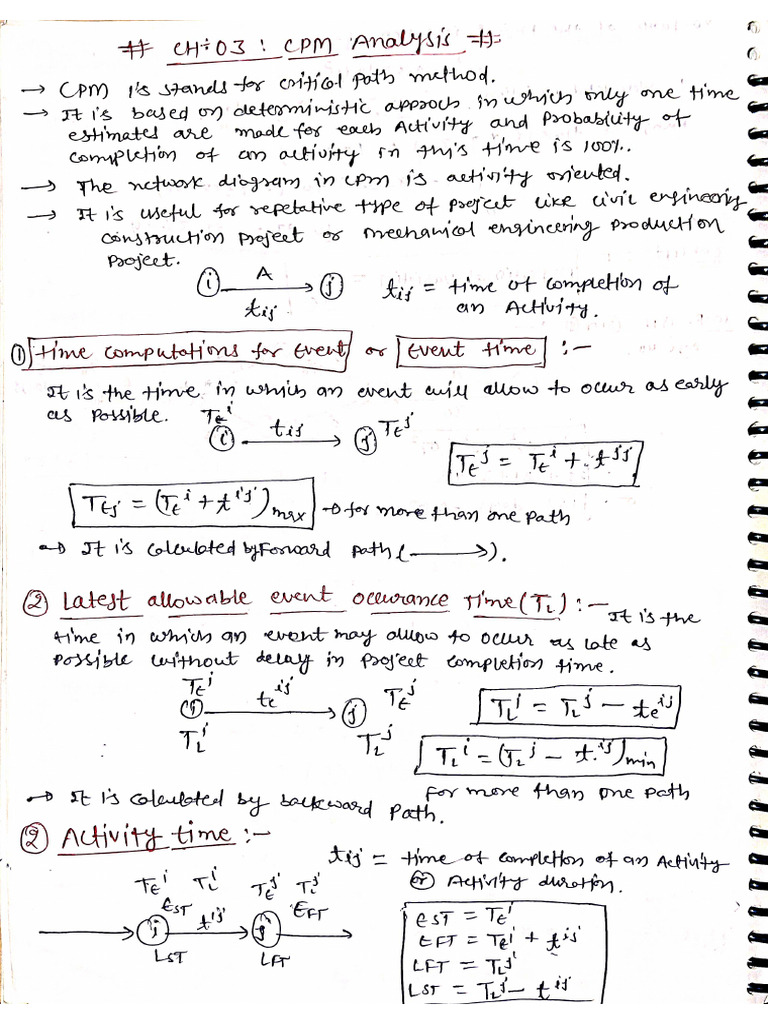 # CH÷03 : CPM Analysis #
→ CPM is stands for critical path method.
→ It is based on deterministic approch in which only one time
estimates are made for each Activity and Probability of
completion of an activity in this time is 100%.
→ The network diagram in CPM is activity oriented.
→ It is useful for repetative type of project like civil engineering
construction project or mechanical engineering production
project.
(i) —A→ (j) tij = time of completion of
tij an Activity.
① Time computations for Event or Event time :-
It is the time in which an event will allow to occur as early
as possible.
TE^i (i) —tij→ (j) TE^j
TE^j = TE^i + t^ij
TEj = (TE^i + t^ij)max → for more than one path
→ It is calculated by Forward path (⟶).
② Latest allowable event occurance Time (TL) :- It is the
time in which an event may allow to occur as late as
possible without delay in project completion time.
TE^i (i) —te^ij→ (j) TE^j
TL^i TL^j
TL^i = TL^j - te^ij
TL^i = (TL^j - t^ij)min
for more than one path
→ It is calculated by backward path.
② Activity time :-
tij = time of completion of an Activity
or Activity duration.
TE^i TL^i TE^j TL^j
EST EFT
→ (i) —t^ij→ (j) →
LST LFT
EST = TE^i
EFT = TE^i + t^ij
LFT = TL^j
LST = TL^j - t^ij